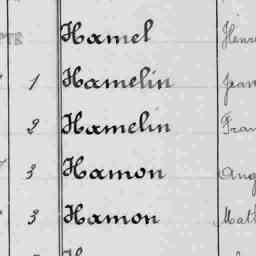 Hamel
1 Hamelin Jean
2 Hamelin Fran
3 Hamon Ang
3 Hamon Math